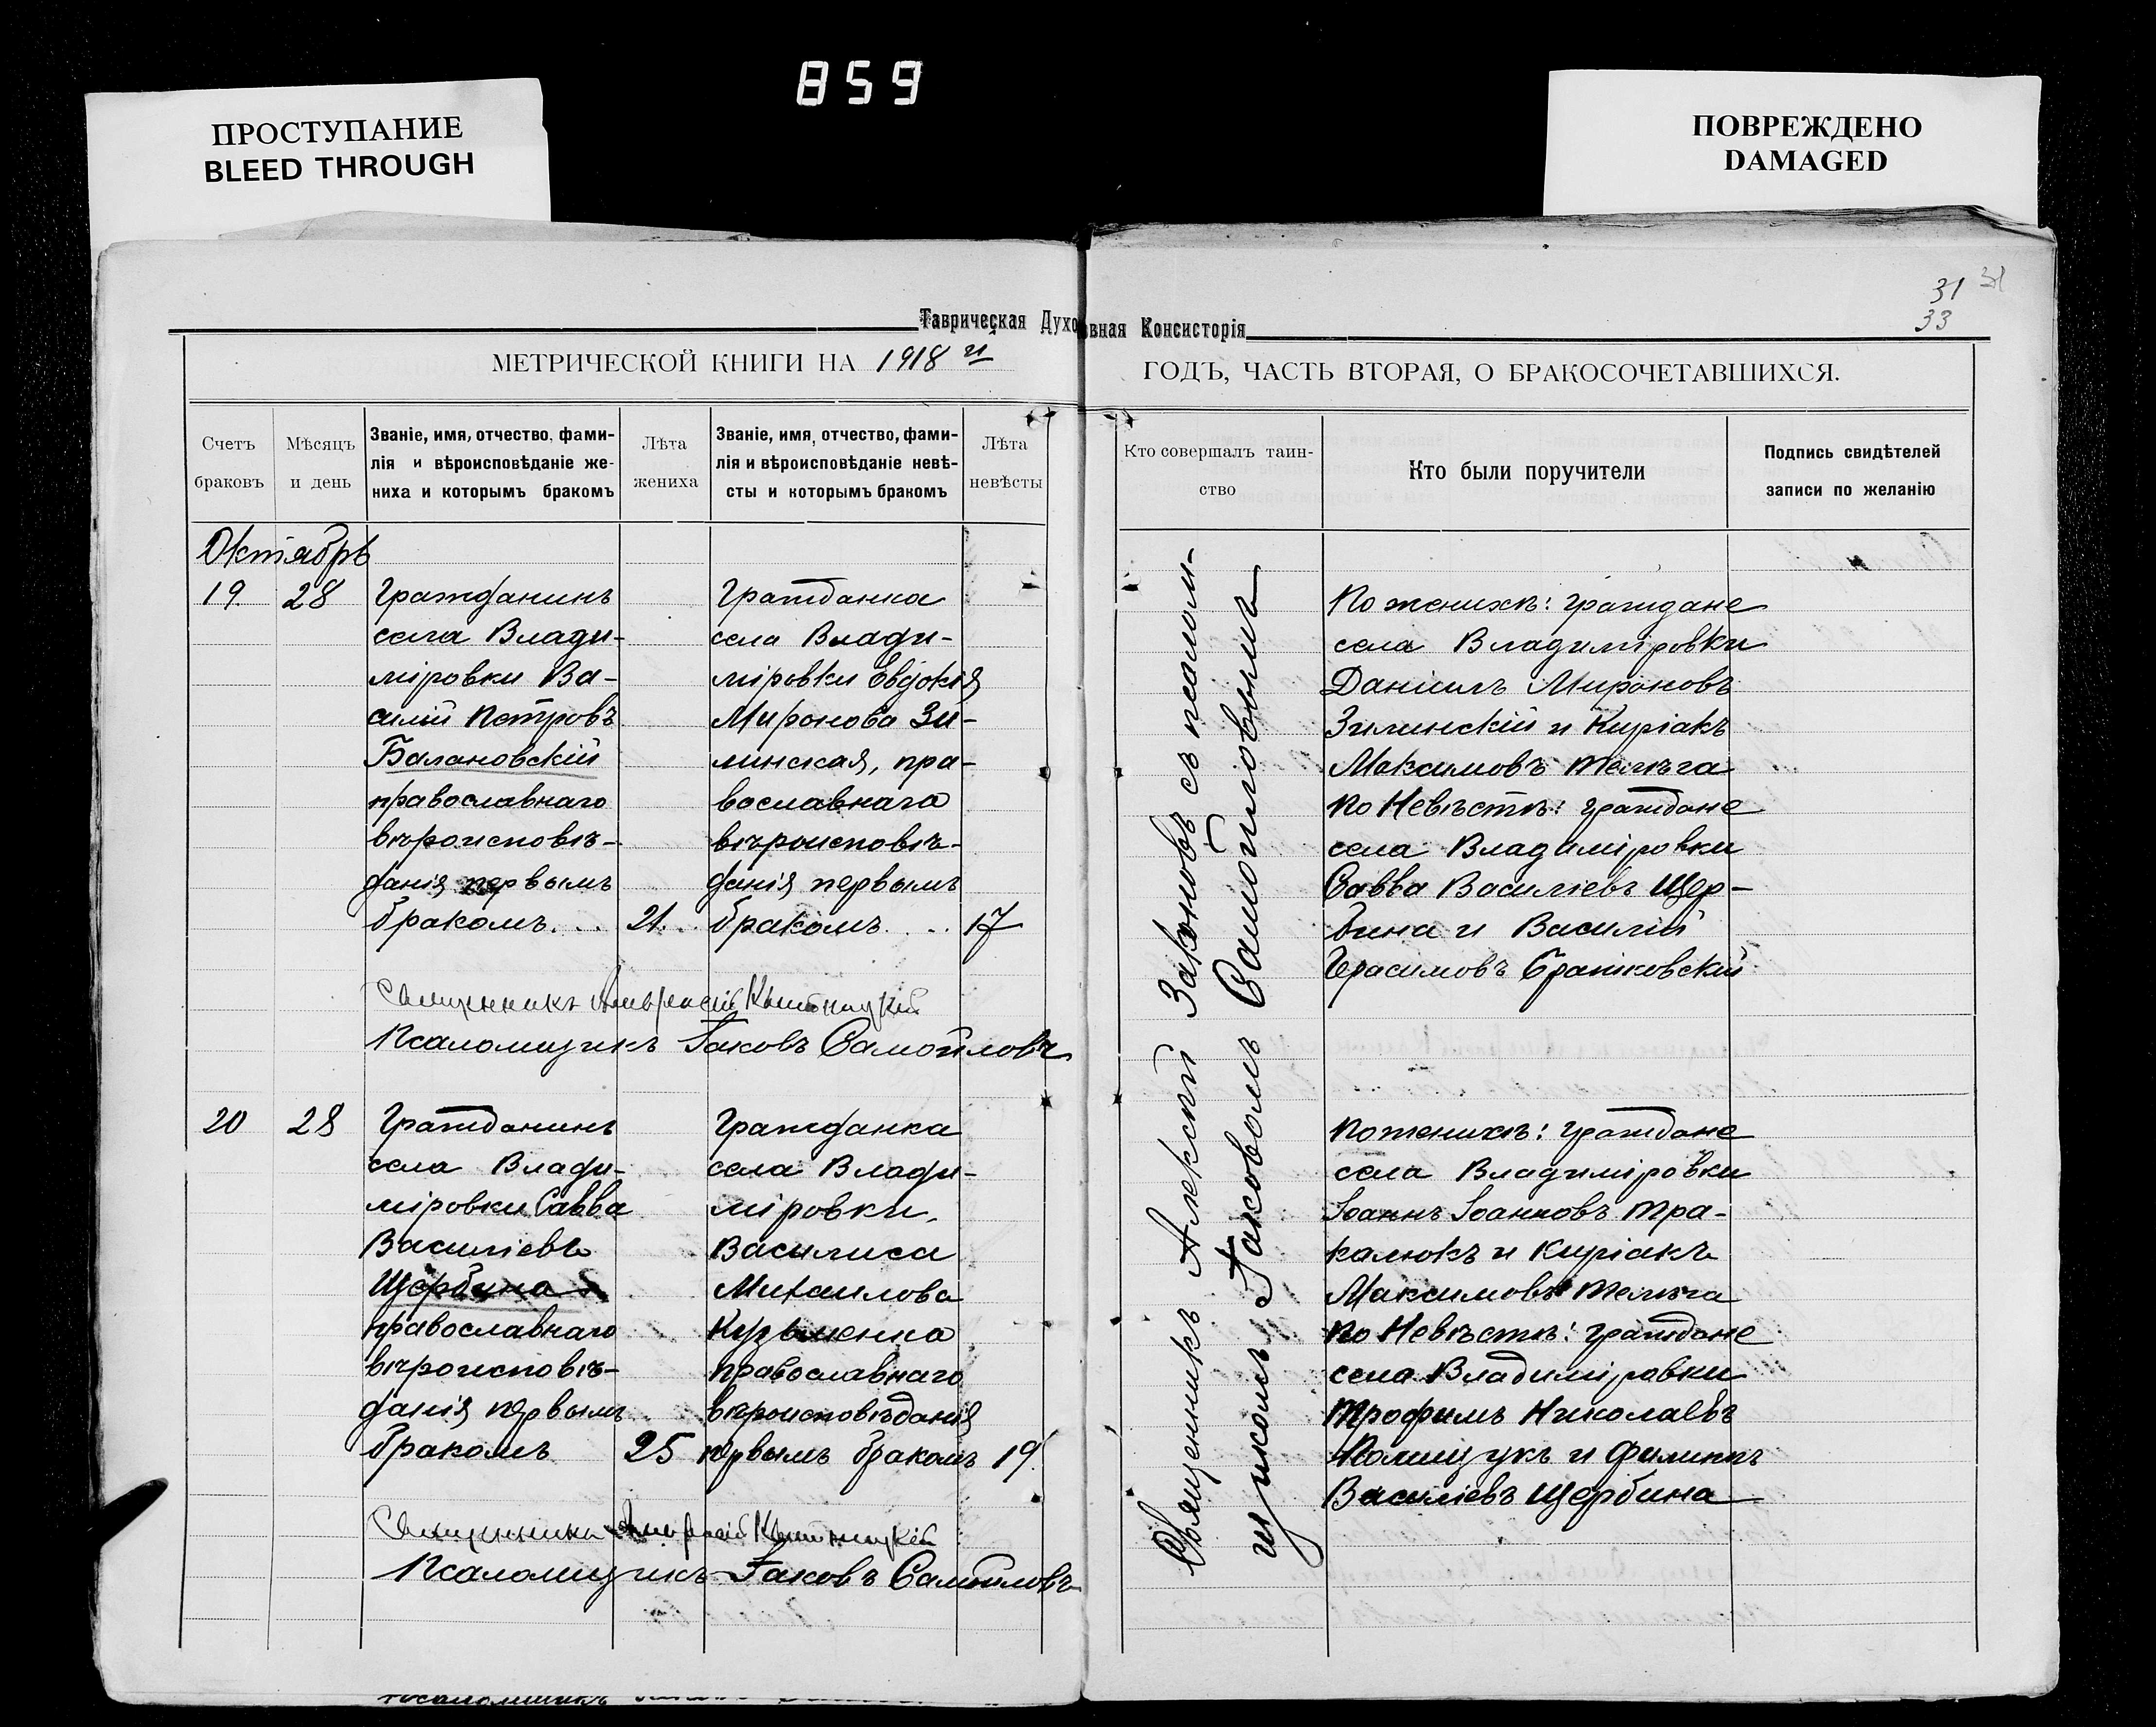 859
ПРОСТУПАНИЕ
BLEED THROUGH
ПОВРЕЖДЕНО
DAMAGED
31 31
33
Таврическая Духовная Консисторія
МЕТРИЧЕСКОЙ КНИГИ НА 1918 й ГОДЪ, ЧАСТЬ ВТОРАЯ, О БРАКОСОЧЕТАВШИХСЯ.
Счетъ
браковъ
Мѣсяцъ
и день
Званіе, имя, отчество, фами-
лія и вѣроисповѣданіе же-
ниха и которымъ бракомъ
Лѣта
жениха
Званіе, имя, отчество, фами-
лія и вѣроисповѣданіе невѣ-
сты и которымъ бракомъ
Лѣта
невѣсты
Кто совершалъ таин-
ство
Кто были поручители
Подпись свидѣтелей
записи по желанію
Октябрь
19. 28
Гражданинъ
села Влади-
міровки Ва-
силій Петровъ
Балановскій
православнаго
вѣроисповѣ-
данія первымъ
бракомъ. . . 21.
Гражданка
села Влади-
міровки Евдокія
Миронова Зи-
линская, пра-
вославнаго
вѣроисповѣ-
данія первымъ
бракомъ. . . 17
Священникъ
Псаломщикъ Іаковъ Самойловъ
Священникъ Алексій Законовъ съ псалом-
щикомъ Іаковомъ Самойловымъ
По женихѣ: граждане
села Владиміровки
Даніилъ Мироновъ
Зилинскій и Киріакъ
Максимовъ Телѣга
По Невѣстѣ: граждане
села Владиміровки
Савва Василіевъ Щер-
бина и Василій
Герасимовъ Братковскій
20 28
Гражданинъ
села Влади-
міровки Савва
Василіевъ
Щербина
православнаго
вѣроисповѣ-
данія первымъ
бракомъ 25
Гражданка
села Влади-
міровки
Василиса
Михаилова
Кузьменко
православнаго
вѣроисповѣданія
первымъ бракомъ 19.
Священникъ
Псаломщикъ Іаковъ Самойловъ
По женихѣ: граждане
села Владиміровки
Іоаннъ Іоанновъ Тра-
калюкъ и Киріакъ
Максимовъ Телѣга
По Невѣстѣ: граждане
села Владиміровки
Трофимъ Николаевъ
Полищукъ и Филиппъ
Василіевъ Щербина